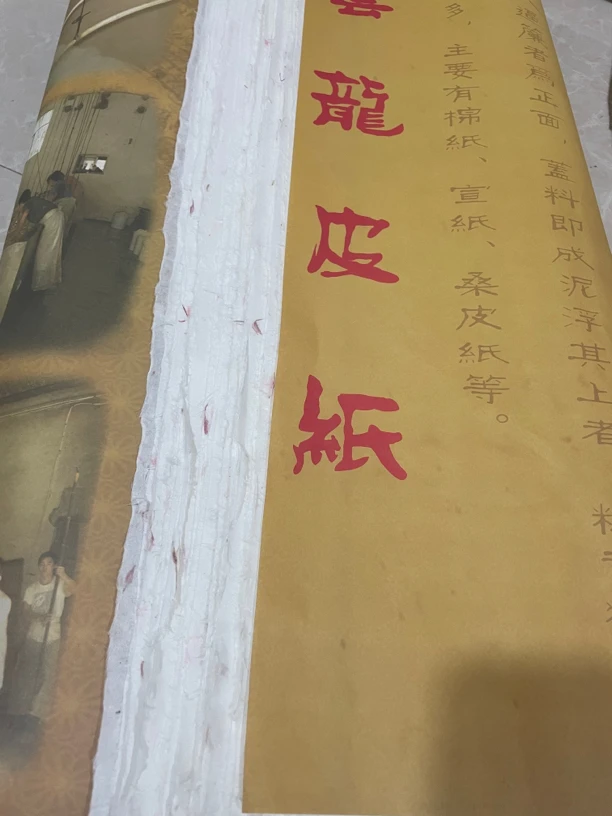 簾者爲正面，蓋料即成泥浮其上者
多，主要有棉紙、宣紙、桑皮紙等。
雲龍皮紙